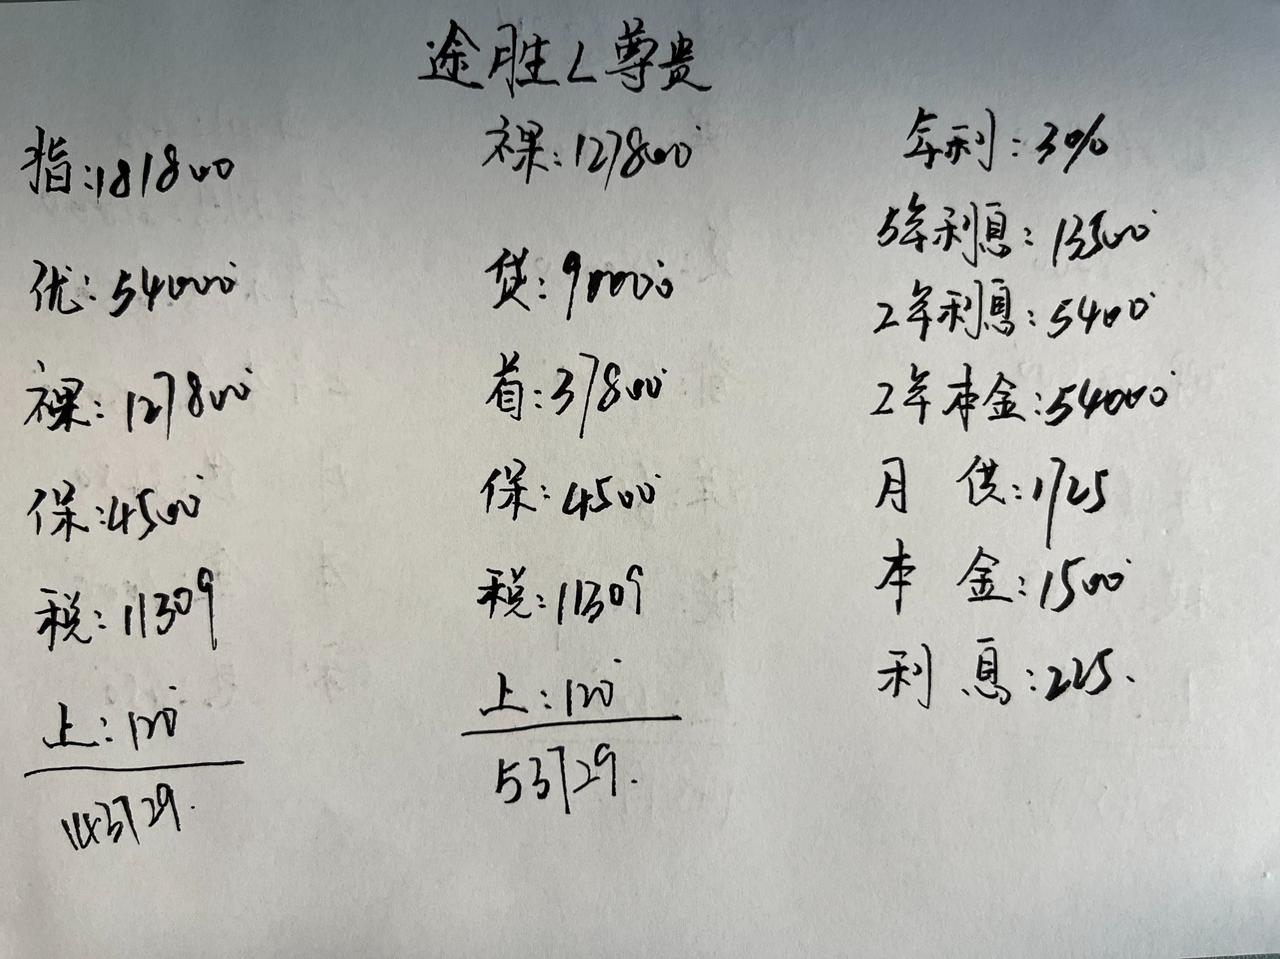 途胜L尊贵
指:181800
优:54000
裸:127800
保:4500
税:11309
上:120
143729.
裸:127800
贷:90000
首:37800
保:4500
税:11309
上:120
53729.
年利:3%
5年利息:13500
2年利息:5400
2年本金:54000
月供:1725
本金:1500
利息:225.